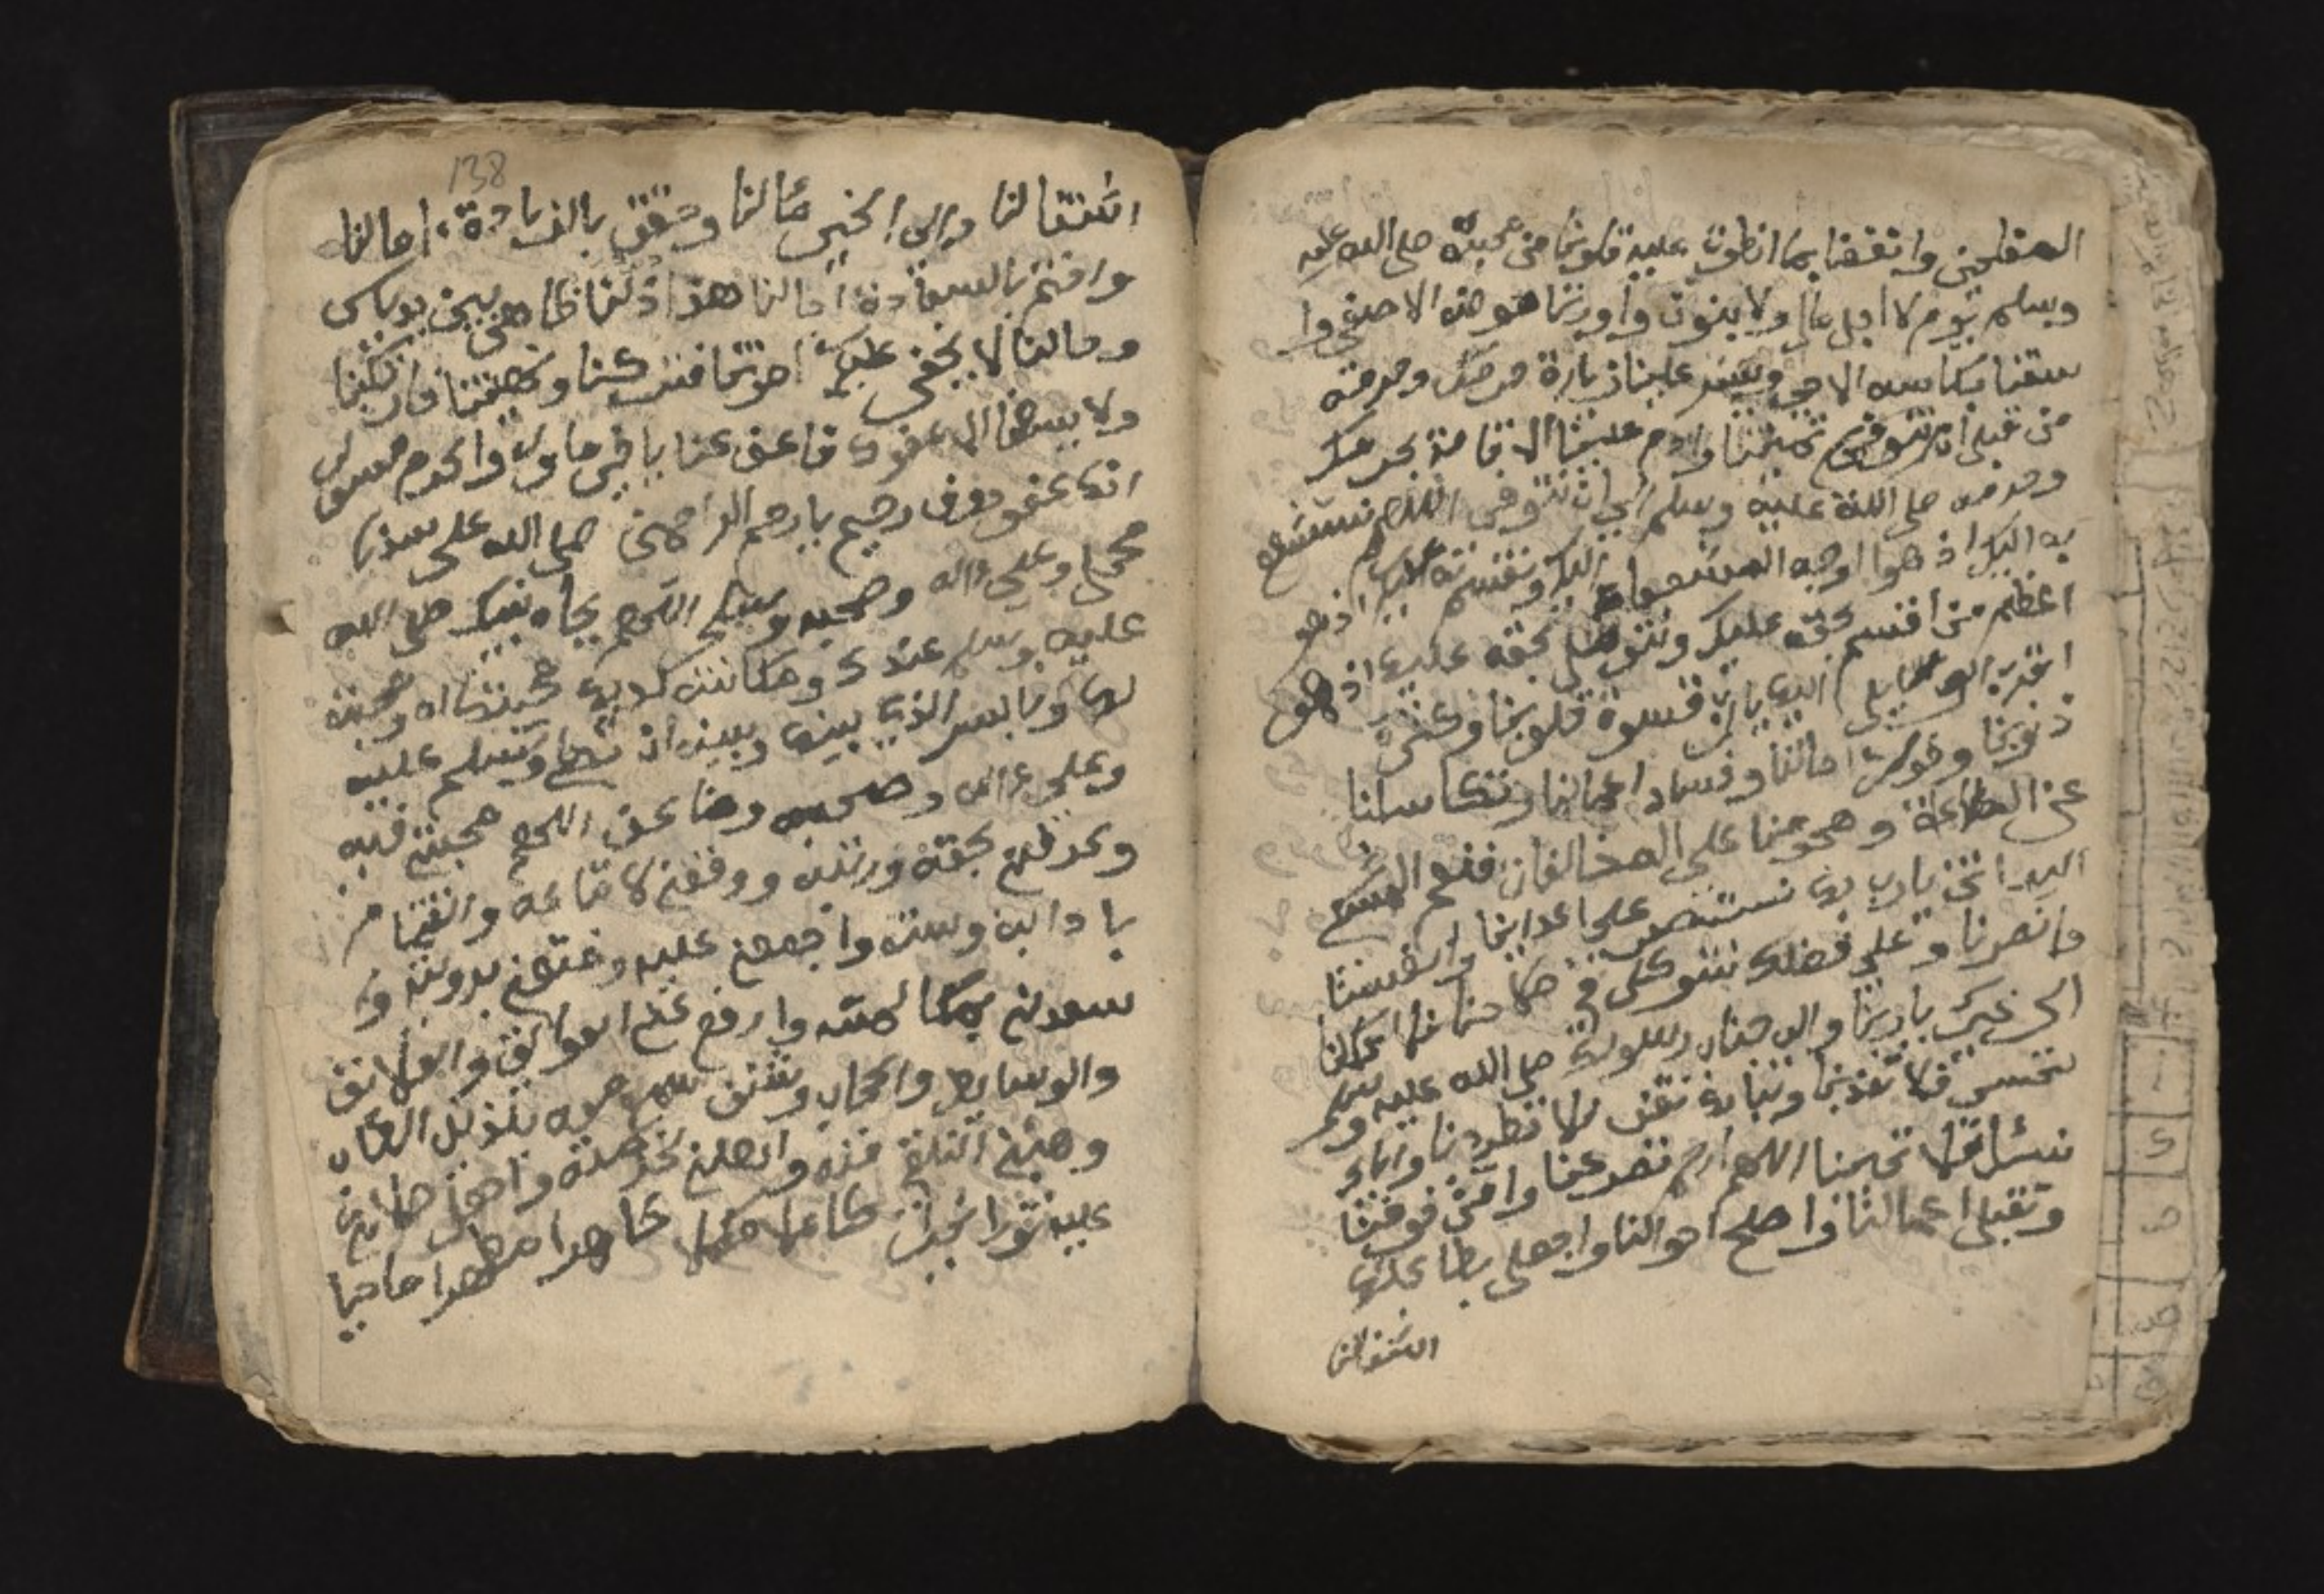 المفلحين وانفعنا بما انطوت عليه قلوبنا من محبته صلى الله عليه
وسلم يوم لا مال ولا بنون وأوردنا حوضه الاصفى وا
سقنا بكاسه الاوفى ويسر علينا زيارة حرمك وحرمه
من قبل ان تميتنا وادم علينا الاقامة بحرمك
وحرمه صلى الله عليه وسلم الى ان نتوفى اللهم نستشفع
به اليك اذ هوا اوجه الشفعاء اليك ونقسم به عليك اذ هو
اعظم من أقسم بحقه عليك ونتوسل بحقه عليك اذ هو
اقرب الوسايل اليك يارب قسوة قلوبنا وكثرة
ذنوبنا وطول امالنا وفساد اعمالنا وتكاسلنا
عن الطاعة وهجومنا على المخالفات فنعم المشتكى
اليه انت يارب بك نستنصر على اعداينا وانفسنا
فانصرنا وعلى فضلك نتوكل في صلاحنا فلا تكلنا
الى غيرك ياربنا والى جناب رسولك صلى الله عليه وسلم
ننتسب فلا تبعدنا وببابك نقف فلا تطردنا واياك
نسئل فلا تخيبنا اللهم ارحم تضرعنا وامن خوفنا
وتقبل اعمالنا واصلح احوالنا واجعل بطاعتك
اشتغالنا
138
اشتغالنا والى الخير مئالنا وحقق بالزيادة امالنا
واختم بالسعادة اجالنا هذا ذلنا ظاهر بين يديك
وحالنا لا يخفى عليك امرتنا فتركنا ونهيتنا فارتكبنا
ولا يسعنا الا عفوك فاعف عنا يا خير مامول واكرم مسول
انك عفو روف رحيم يا ارحم الراحمين صلى الله على سيدنا
محمد وعلى ءاله وصحبه وسلم اللهم بجاه نبيك صلى الله
عليه وسلم عندك ومكانته لديك ومحبتك له ومحبته
لك وبالسر الذي بينك وبينه ان تصلى وتسلم عليه
وعلى ءاله وصحبه وضاعف اللهم محبتي فيه
وعرفني بحقه ورتبه ووفقني لاتباعه والقيام
بادابه وسنته واجمعني عليه ومتعني برويته و
سعدني بمكالمته وارفع عني العوايق والعلايق
والوسايط والحجاب وشنف سمعي معه بلذيذ الخطاب
وهيئني للتلقي منه واهلني لخدمته واجعل صلاتي
عليه نورا نيرا كاملا مكملا طاهرا مطهرا ماحيا